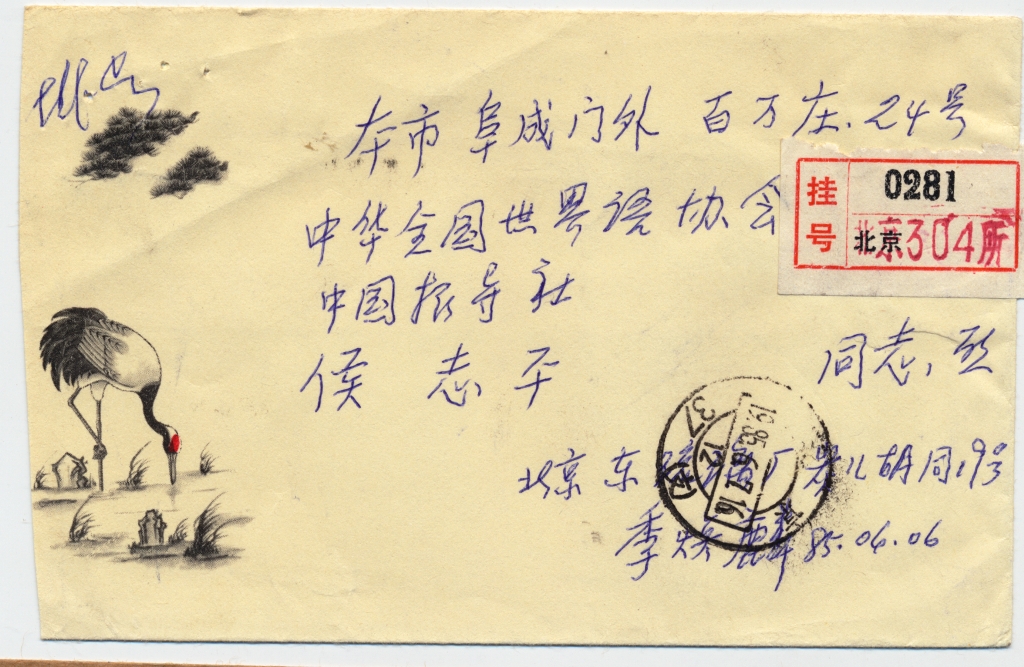 挂号
本市 阜成门外 百万庄.24号
挂 0281
号 北京 北京304所
中华全国世界语协会
中国报导社
侯 志 平 同志.启
37
1985.6.7.16
12
北京 东 胡同19号
季 麟 85.06.06